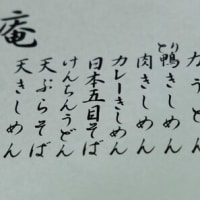 力うどん
とり
鴨きしめん
肉きしめん
カレーきしめん
日本五目そば
けんちんうどん
天ぷらそば
天きしめん
庵